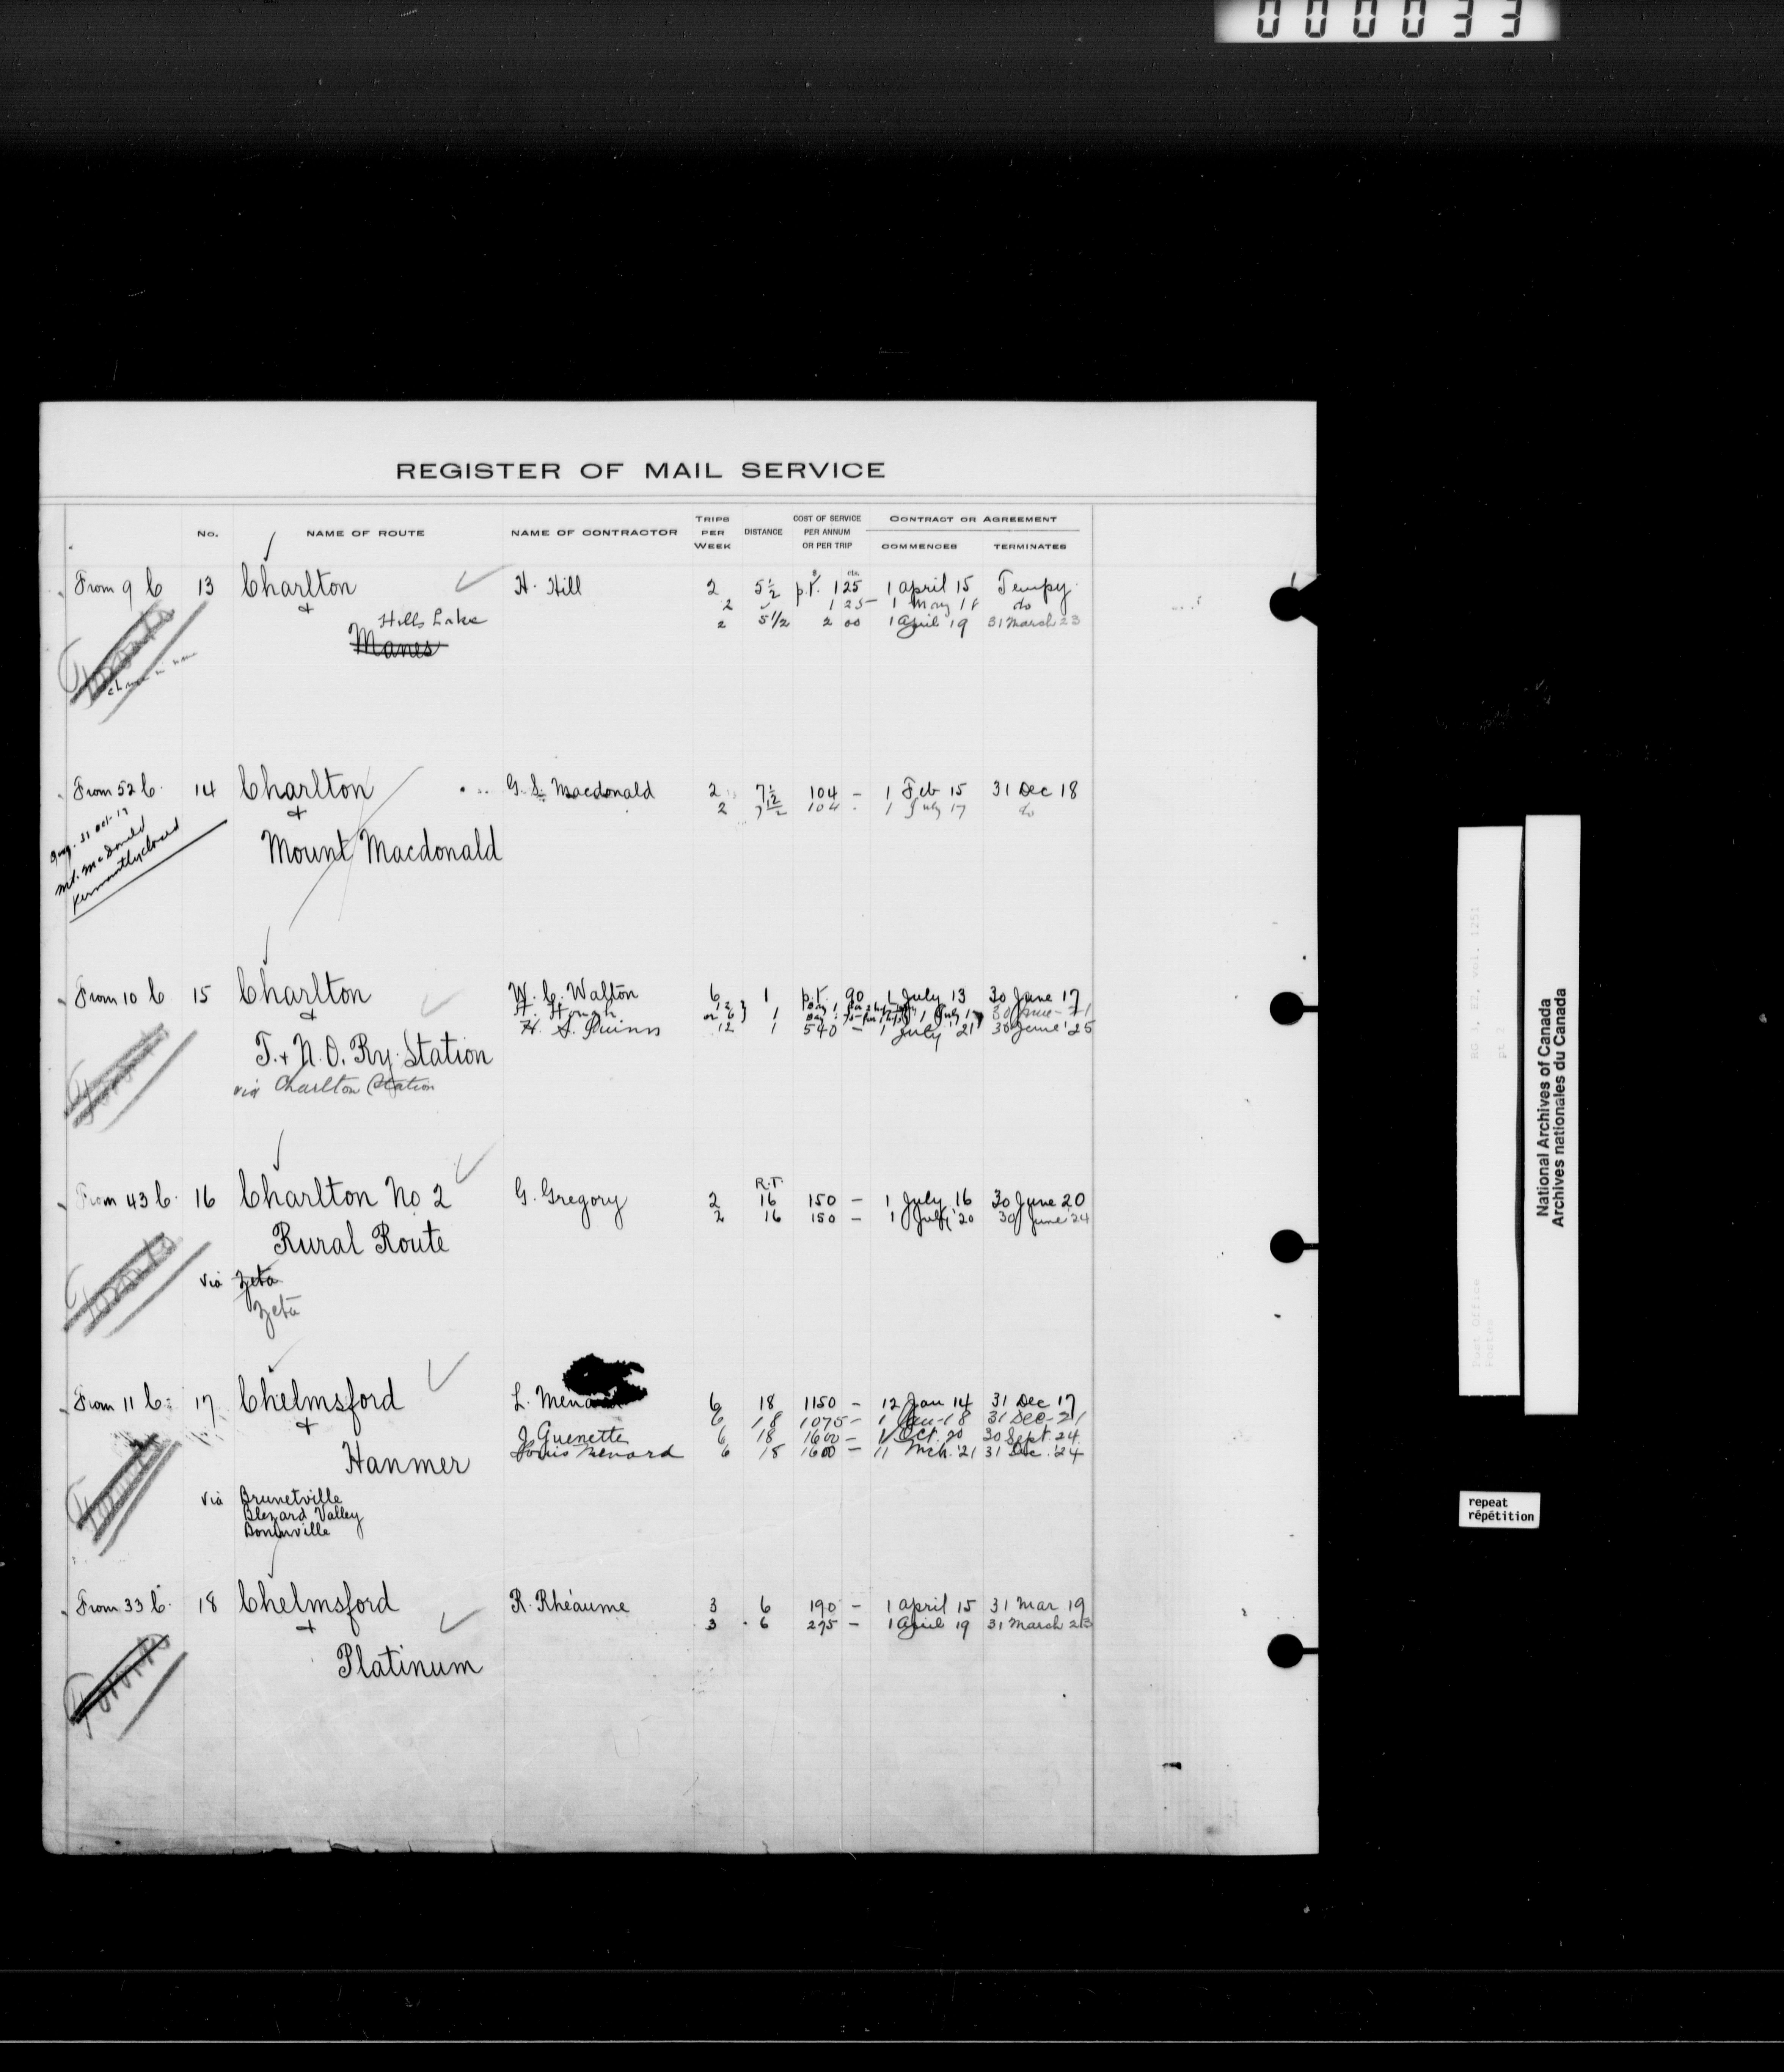 000033
REGISTER OF MAIL SERVICE
No. NAME OF ROUTE NAME OF CONTRACTOR TRIPS PER WEEK DISTANCE COST OF SERVICE PER ANNUM OR PER TRIP CONTRACT OR AGREEMENT COMMENCES TERMINATES
From 9 C 13 Charlton H. Hill 2 5½ p.t. 1 25 1 April 15 Tempy.
& 2 1 25 1 May 18 do
Hills Lake 2 5 1/2 2 00 1 April 19 31 March 23
Manes
Toronto
change in name
From 52 C. 14 Charlton G. S. Macdonald 2 7½ 104 - 1 Feb 15 31 Dec 18
& 2 7½ 104 - 1 July 17 do
31 Oct 17
Mt. McDonald
Permanently closed
Mount Macdonald
From 10 C 15 Charlton W. C. Walton 6 1 p.t. 90 1 July 13 30 June 17
& H. Hough 12 or 6 } 1 1 July 17 30 June-21
H. S. Quinn 12 1 540 - 1 July '21 30 June '25
T. & N. O. Ry. Station
via Charlton Station
Toronto
From 43 C. 16 Charlton No 2 G. Gregory 2 R.T. 16 150 - 1 July 16 30 June 20
2 16 150 - 1 July '20 30 June 24
Rural Route
Toronto
via Zeta
Zeta
From 11 C. 17 Chelmsford L. Menard 6 18 1150 - 12 Jan 14 31 Dec 17
& 6 18 1075 - 1 Jan-18 31 Dec-21
J Guenette 6 18 1600 - 1 Oct. 20 30 Sept 24
Hanmer Louis Menard 6 18 1600 - 11 Mch. '21 31 Dec. '24
Toronto
via Brunetville
Blezard Valley
Boninville
From 33 C. 18 Chelmsford R. Rhéaume 3 6 190 - 1 April 15 31 Mar 19
& 3 6 275 - 1 April 19 31 March 23
Platinum
Toronto
RG 3, E2, vol. 1251
pt 2
Post Office
Postes
National Archives of Canada
Archives nationales du Canada
repeat
répétition